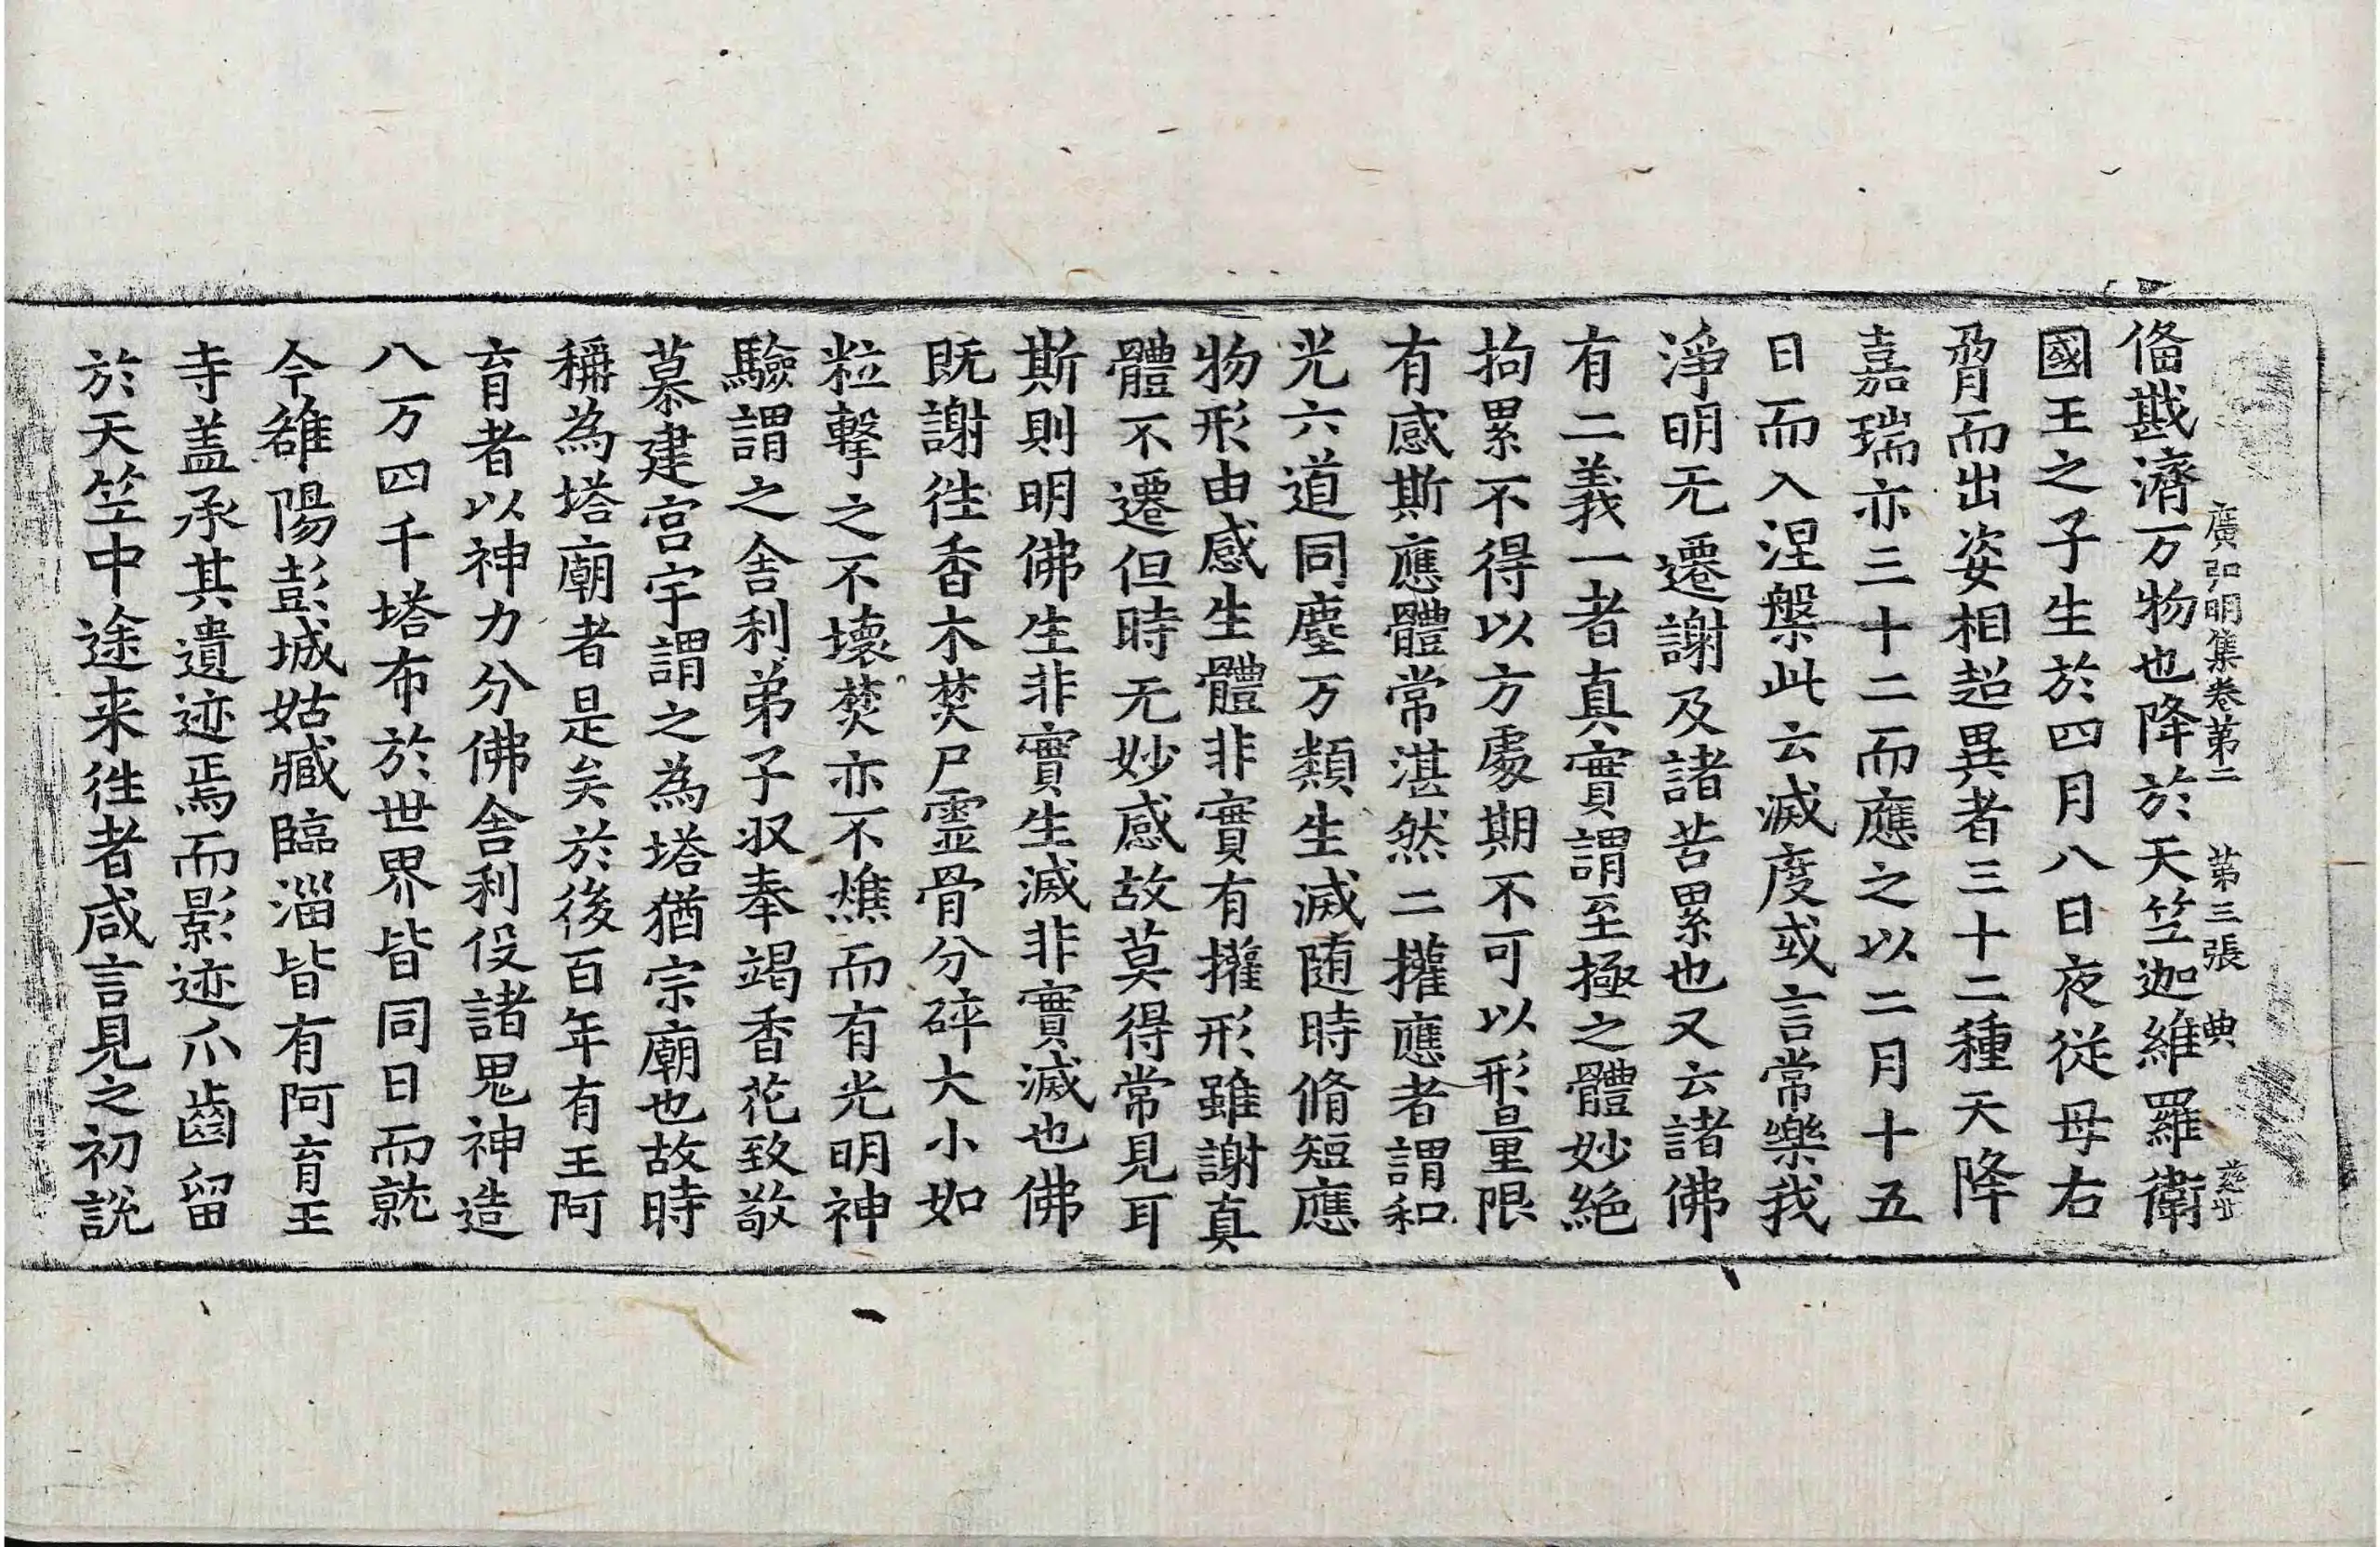 廣弘明集卷第二 第三張 典
俻戡濟万物也降於天竺迦維羅衛
國王之子生於四月八日夜從母右
脅而出姿相超異者三十二種天降
嘉瑞亦三十二而應之以二月十五
日而入涅槃此云滅度或言常樂我
淨明无遷謝及諸苦累也又云諸佛
有二義一者真實謂至極之體妙絶
拘累不得以方處期不可以形量限
有感斯應體常湛然二權應者謂和
光六道同塵万類生滅随時脩短應
物形由感生體非實有權形雖謝真
體不遷但時无妙感故莫得常見耳
斯則明佛生非實生滅非實滅也佛
既謝徃香木焚尸霊骨分碎大小如
粒擊之不壞焚亦不燋而有光明神
驗謂之舎利弟子収奉竭香花致敬
慕建宮宇謂之為塔猶宗廟也故時
稱為塔廟者是矣於後百年有王阿
育者以神力分佛舎利役諸鬼神造
八万四千塔布於世界皆同日而就
今雒陽彭城姑臧臨淄皆有阿育王
寺盖承其遺迹焉而影迹爪齒留
於天竺中途来徃者咸言見之初說